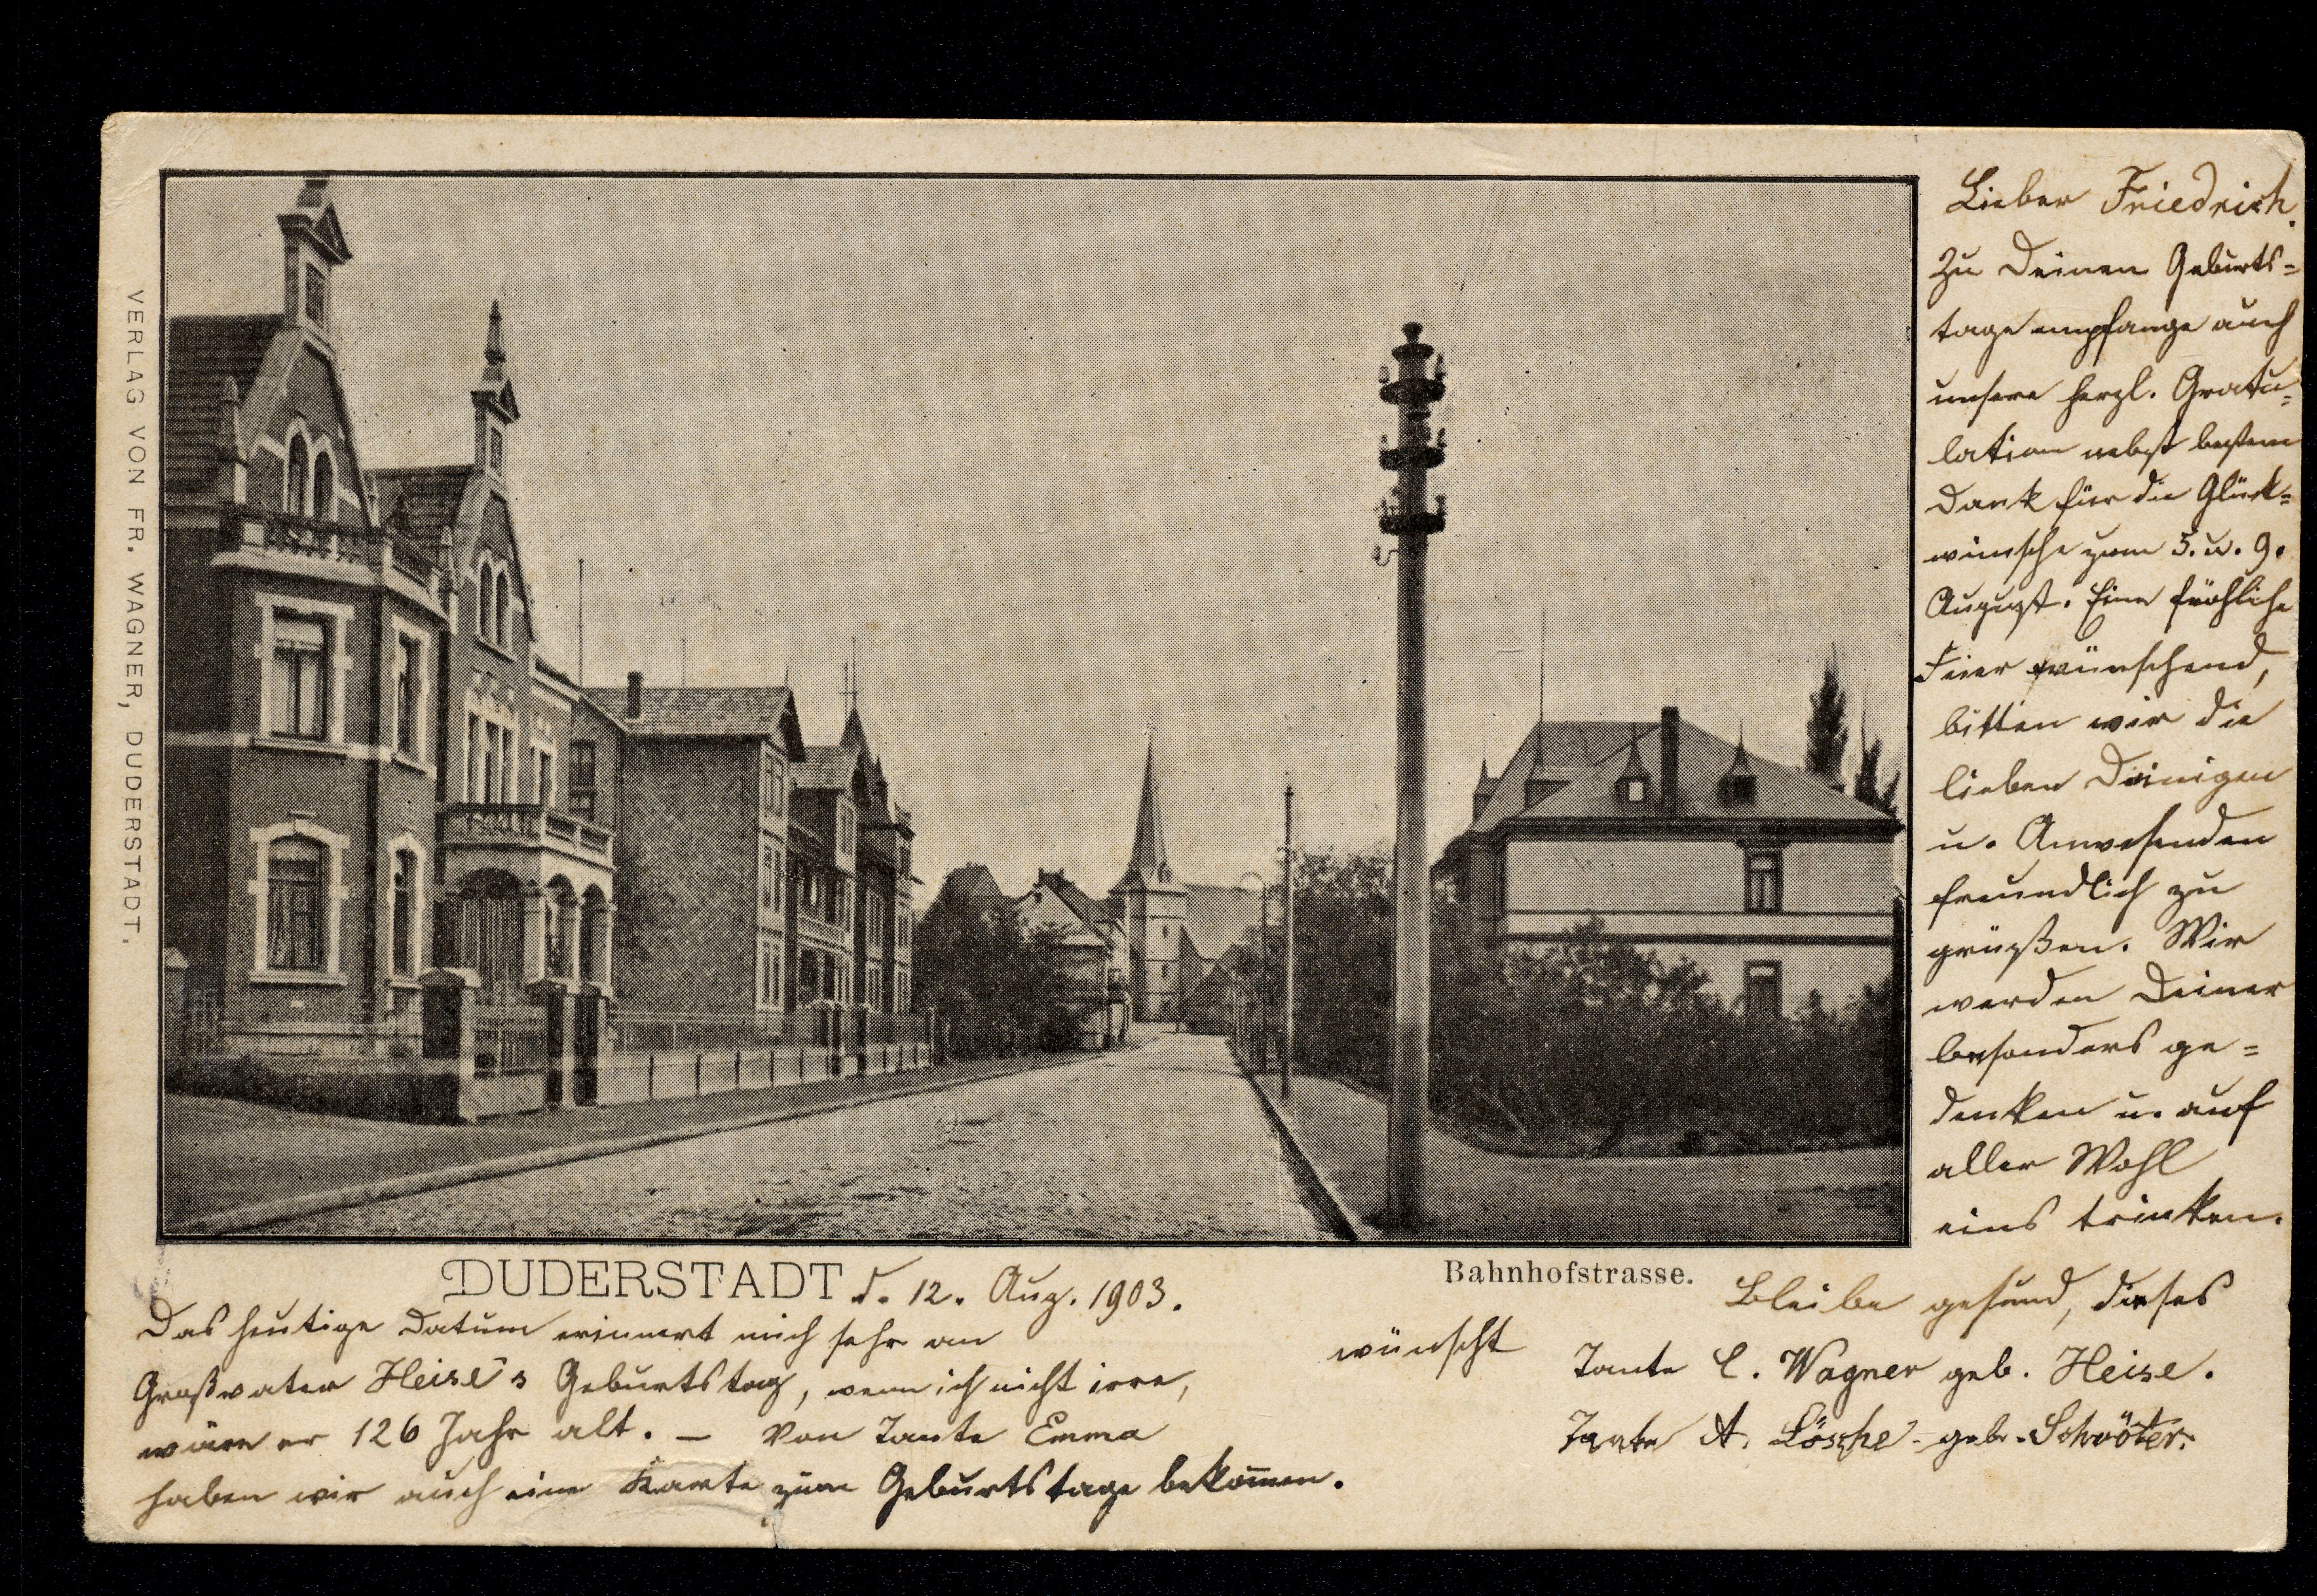 VERLAG VON FR. WAGNER, DUDERSTADT.
Lieber Friedrich.
Zu Deinen Geburts=
tage empfange auch
unsere herzl. Gratu=
lation nebst bestem
Dank für die Glück=
wünsche zum 5. u. 9.
August. Eine fröhliche
Feier wünschend,
bitten wir die
lieben Deinigen
u. Anwesenden
freundlich zu
grüßen. Wir
werden Deiner
besonders ge=
denken u. auf
aller Wohl
eins trinken.
DUDERSTADT d. 12. Aug. 1903.
Bahnhofstrasse.
Bleibe gesund, dieses
wünscht
Tante C. Wagner geb. Heise.
Tante A. Lösche geb. Schröter.
Das heutige Datum erinnert mich sehr an
Großvater Heise's Geburtstag, wenn ich nicht irre,
wäre er 126 Jahr alt. — Von Tante Emma
haben wir auch eine Karte zum Geburtstage bekom̅en.